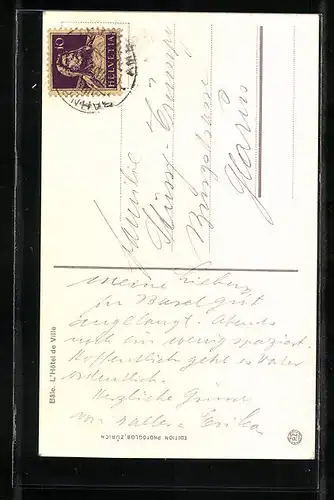 10
HELVETIA
BAHN
Familie
Glarus
Meine Lieben,
in Basel gut
angelangt. Abends
noch ein wenig spaziert.
Hoffentlich geht es Vater
ordentlich.
Herzliche Grüsse
von
Erika
Bâle. L'Hôtel de Ville
EDITION PHOTOGLOB, ZÜRICH